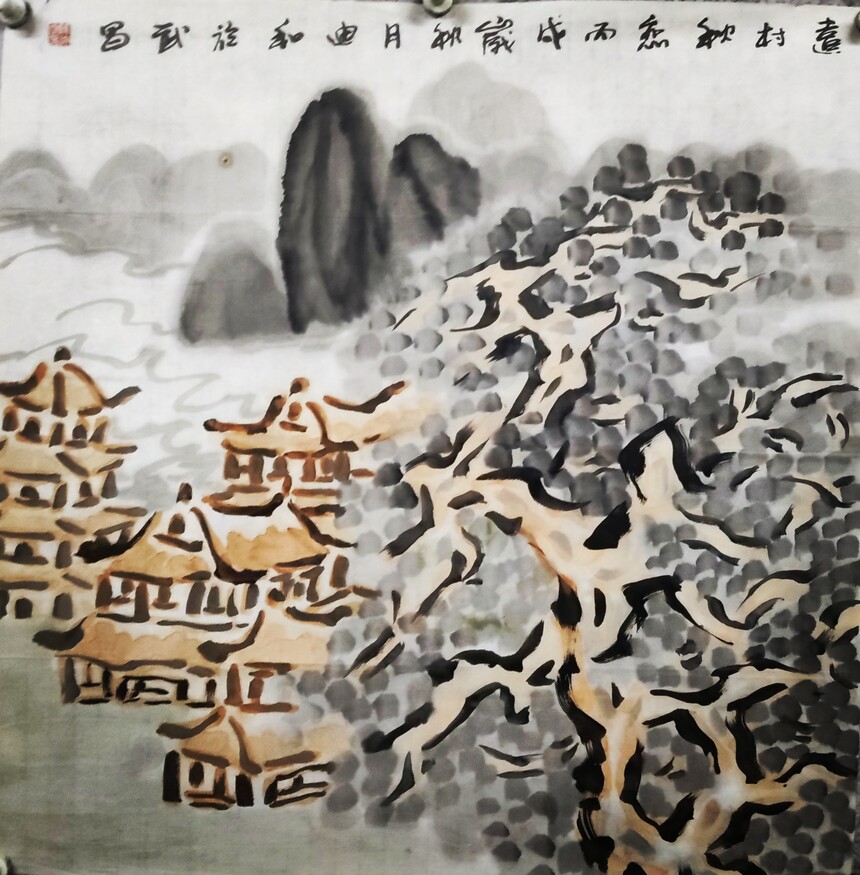 遠村秋丙戌歲秋月迪和於武昌